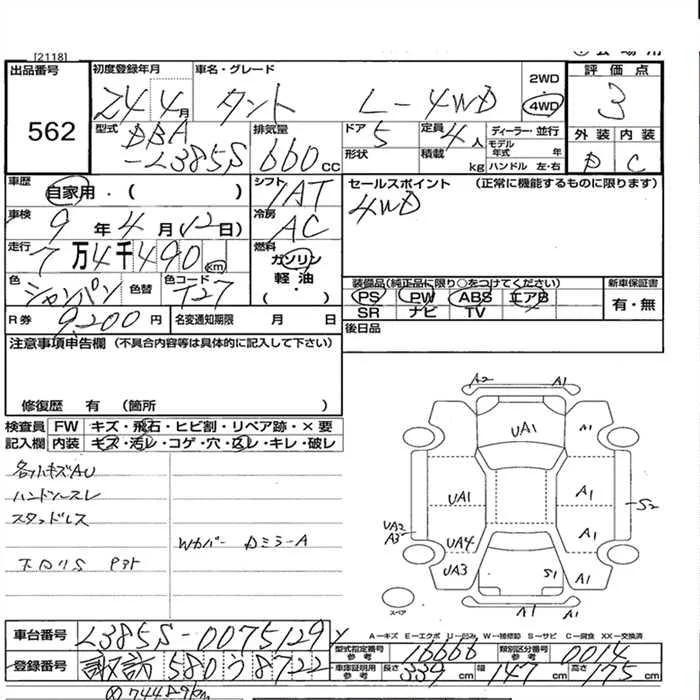 [2118]
出品番号
562
初度登録年月
24 4月
車名・グレード
タント L-4WD
2WD
4WD
評価点
3
外装 内装
D C
型式
DBA
-L385S
排気量
660 CC
ドア
5
定員
4人
ディーラー・並行
形状
積載
kg
モデル年式 年
ハンドル 左・右
車歴
自家用・( )
シフト
7AT
セールスポイント (正常に機能するものに限ります)
4WD
車検
9年4月12日)
冷房
AC
走行
7万4千490 km
燃料
ガソリン
軽油
( ・ )
色
シャンパン
色替
色コード
T27
装備品(純正品に限り○をつけてください)
PS PW ABS エアB
SR ナビ TV
新車保証書
有・無
R券
9,200円
名変通知期限 月 日
後日品
注意事項申告欄 (不具合内容等は具体的に記入して下さい)
修復歴 有 (箇所 )
検査員 FW キズ・飛石・ヒビ割・リペア跡・×要
記入欄 内装 キズ・汚レ・コゲ・穴・スレ・キレ・破レ
各ハキズAU
ハンドルスレ
スタッドレス
Wカバー DミラーA
A2 A1
UA1
UA1 A1
S2
UA2
A3
UA4 A1
UA3 S1 A1
A1
スペア
A－キズ E－エクボ U－凹み W－補修跡 S－サビ C－腐食 XX－交換済
車台番号
L385S-0075129
型式指定番号
参考
16666
類別区分番号
参考
0014
登録番号
諏訪 580 う 8722
車庫証明用
参考
長さ
339 cm
幅
147 cm
高さ
175 cm